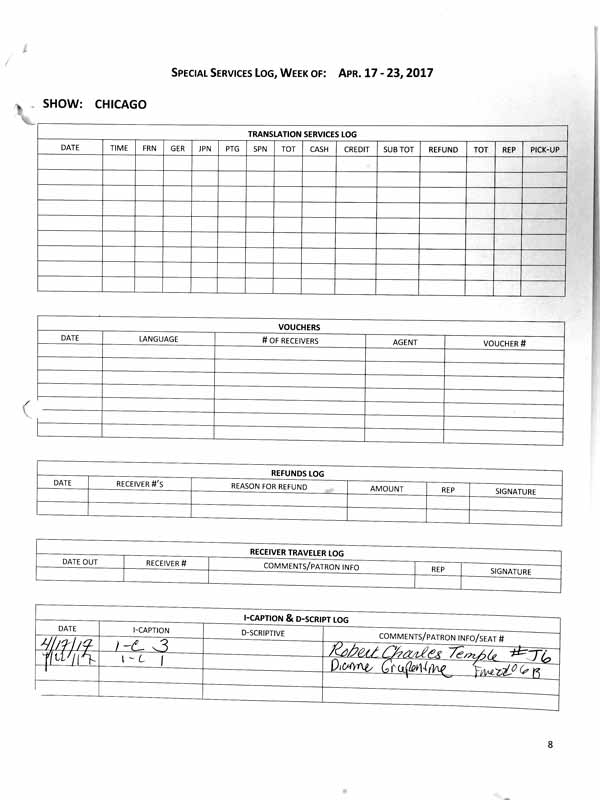 SPECIAL SERVICES LOG, WEEK OF: APR. 17 - 23, 2017
SHOW: CHICAGO
TRANSLATION SERVICES LOG
DATE TIME FRN GER JPN PTG SPN TOT CASH CREDIT SUB TOT REFUND TOT REP PICK-UP
VOUCHERS
DATE LANGUAGE # OF RECEIVERS AGENT VOUCHER #
REFUNDS LOG
DATE RECEIVER #'S REASON FOR REFUND AMOUNT REP SIGNATURE
RECEIVER TRAVELER LOG
DATE OUT RECEIVER # COMMENTS/PATRON INFO REP SIGNATURE
I-CAPTION & D-SCRIPT LOG
DATE I-CAPTION D-SCRIPTIVE COMMENTS/PATRON INFO/SEAT #
4/19/17 I-C 3 Robert Charles Temple #J6
I-C 1 Dianne
8